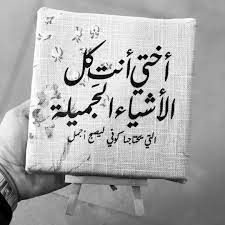 أختي أنت كل
الأشياء الجميلة
التي يحتاجها كوني ليصبح أجمل